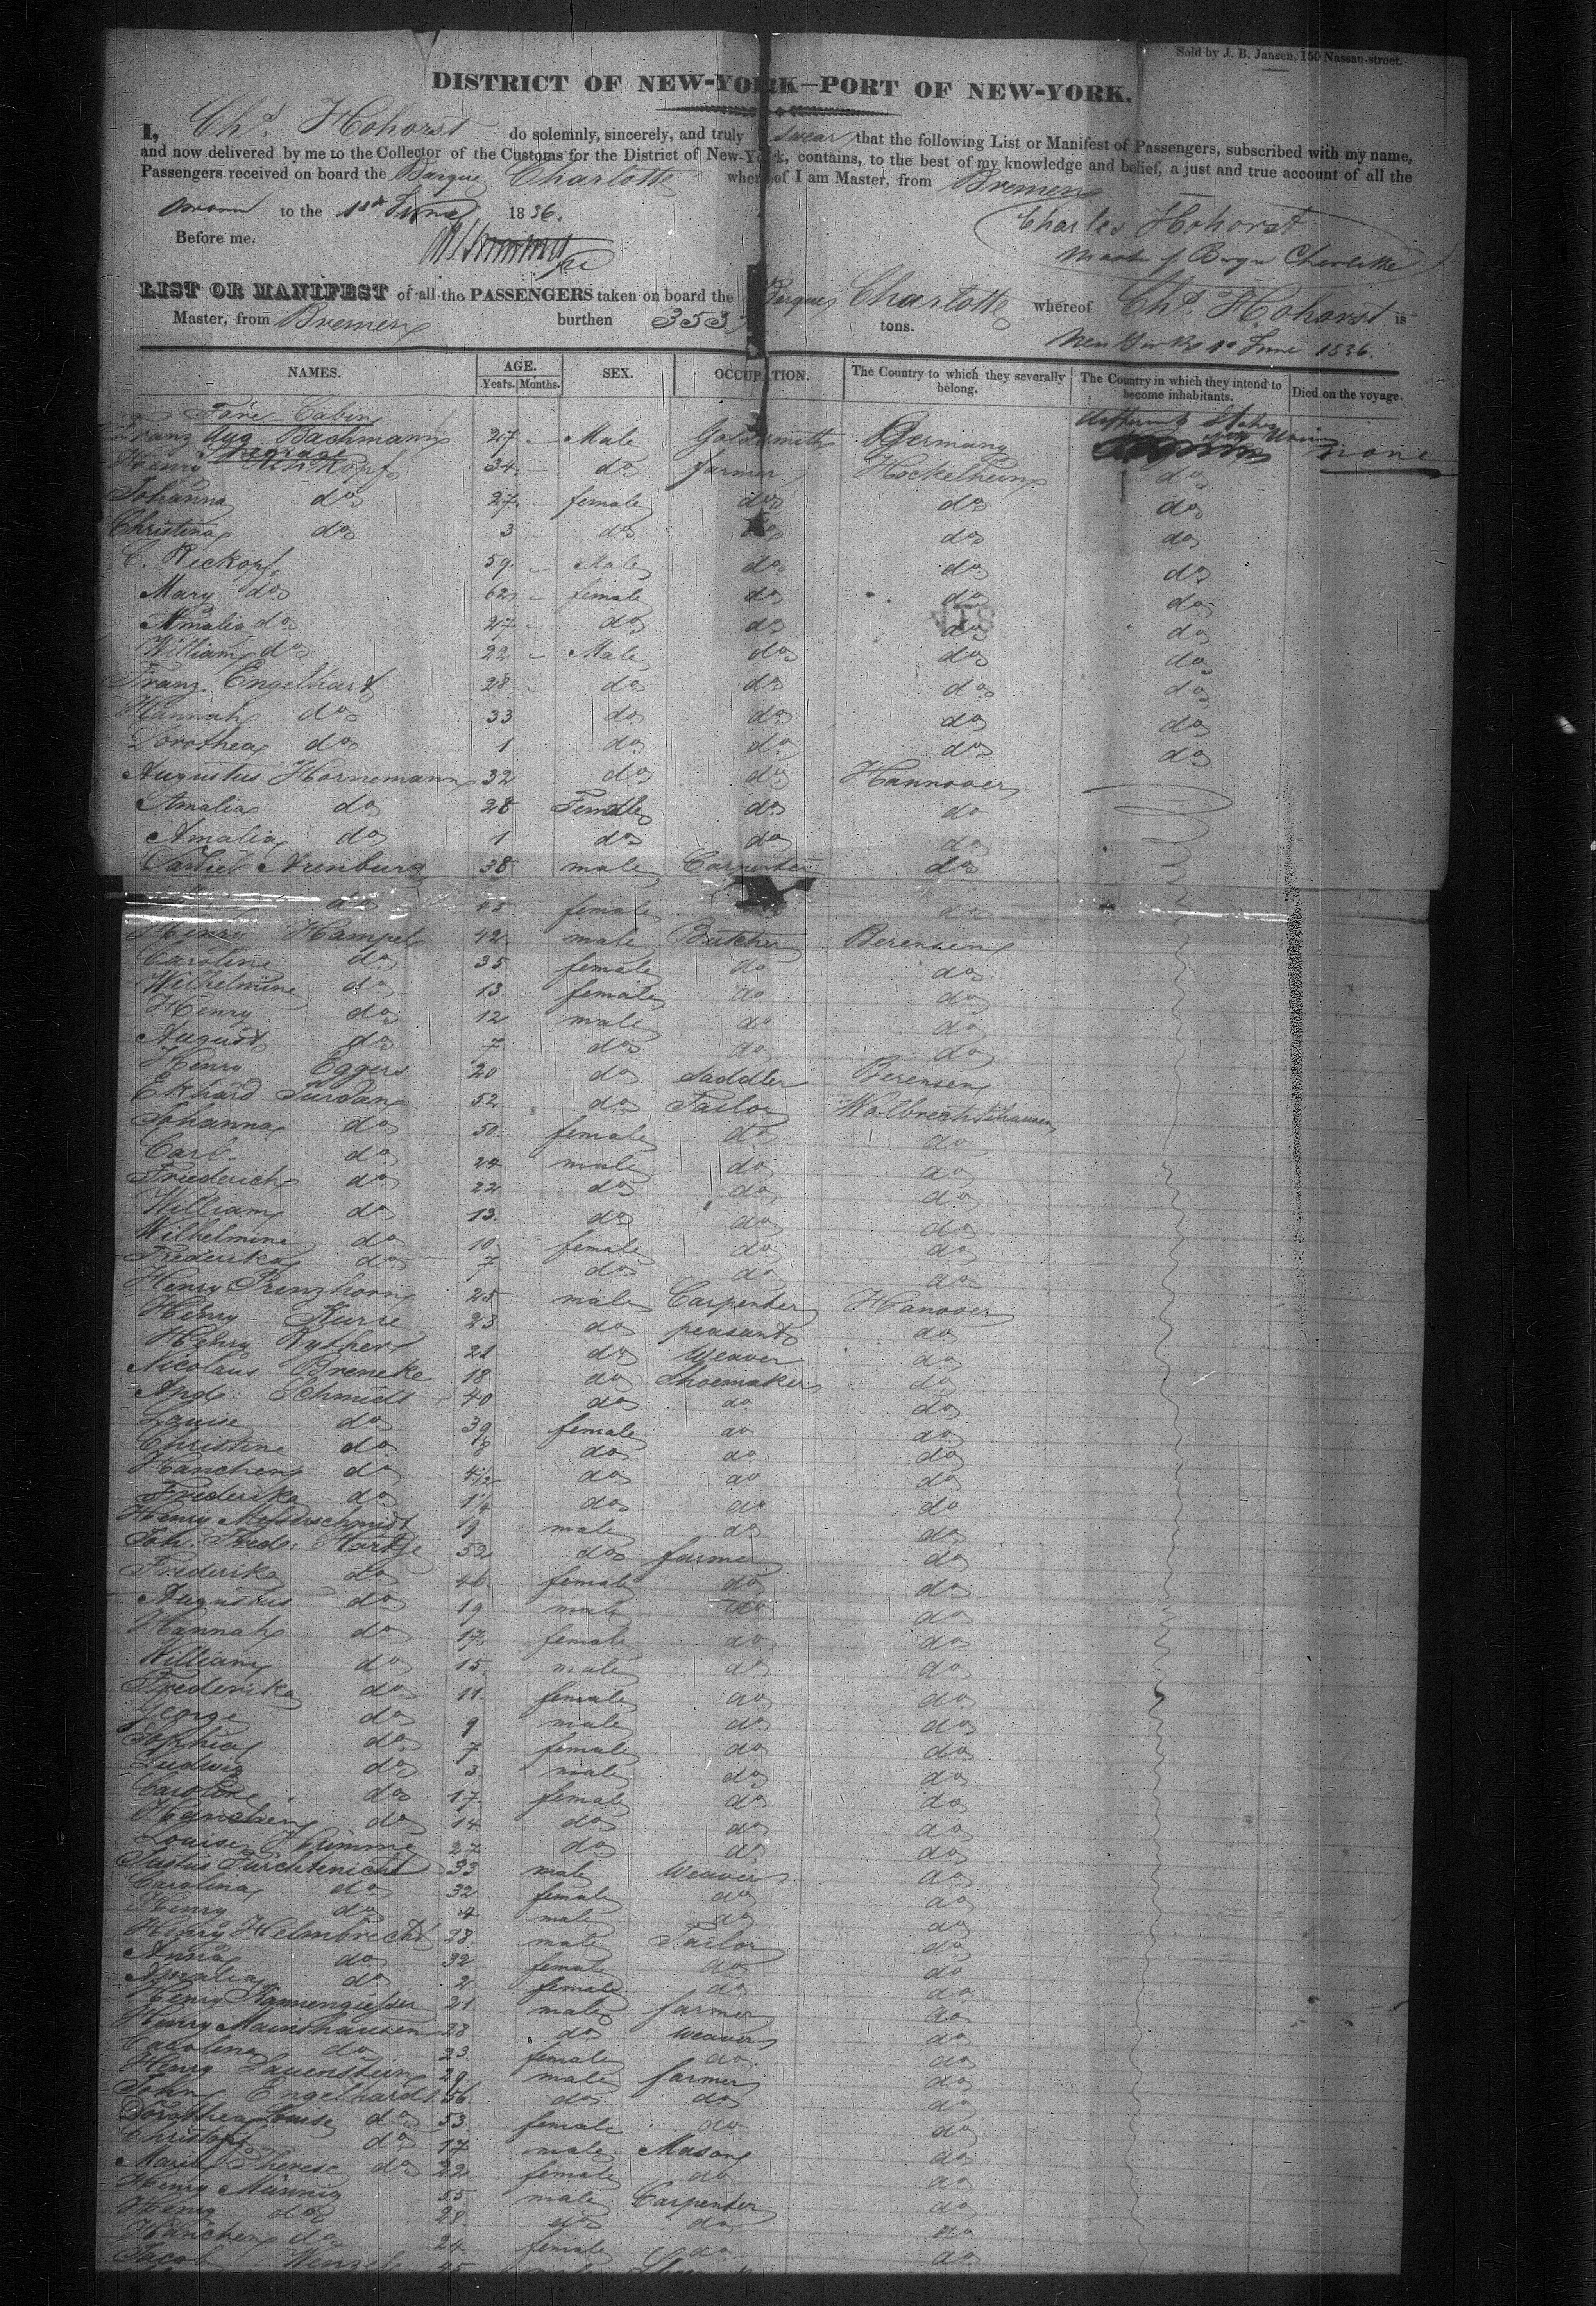 Sold by J. B. Jansen, 150 Nassau-street.
DISTRICT OF NEW-YORK—PORT OF NEW-YORK.
I, Chs. Hohorst do solemnly, sincerely, and truly swear that the following List or Manifest of Passengers, subscribed with my name,
and now delivered by me to the Collector of the Customs for the District of New-York, contains, to the best of my knowledge and belief, a just and true account of all the
Passengers received on board the Barque Charlotte whereof I am Master, from Bremen
to the 1st June 1836.
Charles Hohorst
Before me,
Master of Barque Charlotte
LIST OR MANIFEST of all the PASSENGERS taken on board the Barque Charlotte whereof Chs. Hohorst is
Master, from Bremen burthen 353 tons.
New York 1st June 1836.
NAMES. AGE. Years. Months. SEX. OCCUPATION. The Country to which they severally belong. The Country in which they intend to become inhabitants. Died on the voyage.
Fore Cabin
Franz Aug. Bachmann 27 — Male Goldsmith Germany different States none
Steerage
Henry 34 — do farmer Hockelheim do
Johanna do 27 — female do do do
Christina do 3 do do do do
C. Reckopf 59 — Male do do do
Mary do 62 — female do do do
Amalia do 27 — do do do do
William do 22 — Male do do do
Franz Engelhart 28 do do do do
Hannah do 33 do do do do
Dorothea do 1 do do do do
Augustus Hornemann 32 do do Hannover
Amalia do 28 Female do do
Amalia do 1 do do do
Daniel Arenburg 38 male Carpenter do
do 45 female do
Henry Hampel 42 male Butcher Berensen
Caroline do 35 female do do
Wilhelmine do 13 female do do
Henry do 12 male do do
August do 7 do do do
Henry Eggers 20 do Saddler Berensen
Ekhard Jurdan 52 do Tailor Wolbrechtshausen
Johanna do 50 female do do
Carl do 24 male do do
Friederich do 22 do do do
William do 13 do do do
Wilhelmine do 10 female do do
Frederika do 7 do do do
Henry Prinzhorn 25 male Carpenter Hanover
Henry Kurre 23 do peasant do
Henry Ryther 21 do Weaver do
Nicolaus Breneke 18 do Shoemaker do
And. Schmidt 40 do do do
Louise do 39 female do do
Christine do 8 do do do
Hanchen do 4½ do do do
Frederika do 1¼ do do do
Henry Messerschmidt 19 male do do
Joh. Fred. Hartje 52 do farmer do
Frederika do 46 female do do
Augustus do 19 male do do
Hannah do 17 female do do
William do 15 male do do
Frederika do 11 female do do
George do 9 male do do
Sophia do 7 female do do
Ludwig do 3 male do do
Caroline do 17 female do do
Hanchen do 14 do do do
Louise Grimme 27 do do do
Justus Fürchtenicht 33 male Weaver do
Carolina do 32 female do do
Henry do 4 male do do
Henry Helmbrecht 28 male Tailor do
Anna do 32 female do do
Amalia do 2 female do do
Henry Kannengiesser 21 male farmer do
Henry Mainshausen 28 do weaver do
Carolina do 23 female do do
Henry Lauenstein 29 male farmer do
John Engelhard 56 do do do
Dorothea Louise do 53 female do do
Christoph do 17 male Mason do
Maria Therese do 22 female do do
Henry Münnig 55 male Carpenter do
Henry do 28 do do do
Hanchen do 24 female do do
Jacob Wenzel 45 male